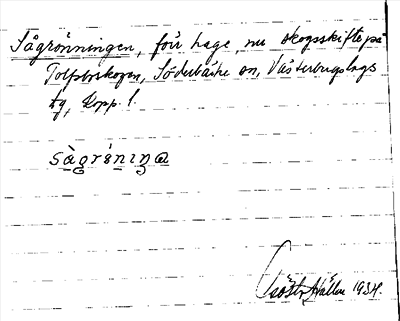 Sågrönningen, förr hage, nu skogsskifte på
Tolfsboskogen, Söderbärke sn, Västerbergslags
tg, Kopp. l.
sàgrö́niŋa
Gösta Hállen 1934.